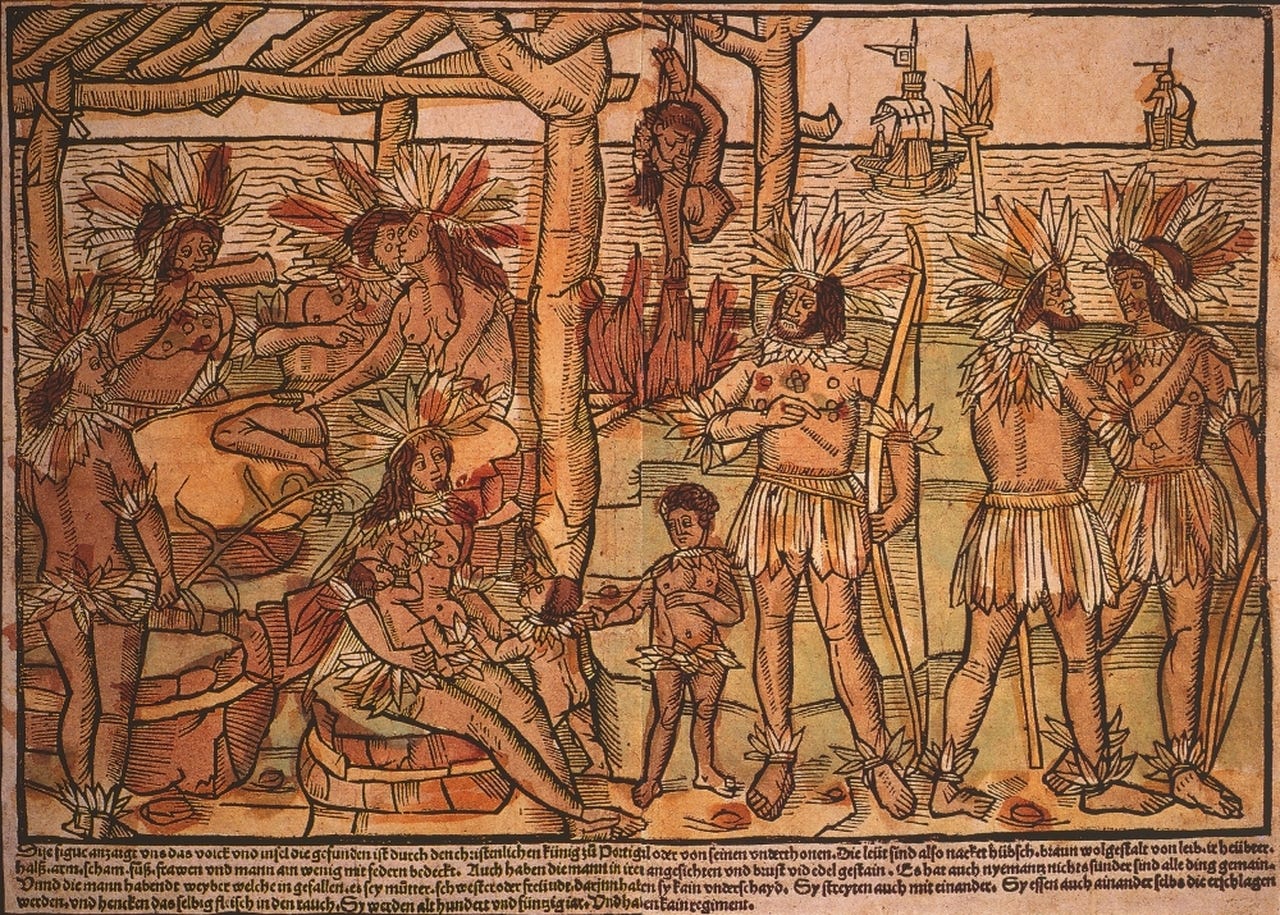 Dise figur anzaigt vns das volck vnd insel die gefunden ist durch den christenlichen künig zů Portigal oder von seinen vnderthonen. Die leüt sind also nacket hübsch. braun wolgestalt von leib. ir heübter.
halß. arm. scham. füß. frawen vnd mann ain wenig mit federn bedeckt. Auch haben die mann in iren angesichten vnd brust vil edel gestain. Es hat auch nyemantz nichts sunder sind alle ding gemain.
Vnnd die mann habendt weyber welche in gefallen. es sey můtter. schwester oder freündt. darinn haben sy kain vnderschayd. Sy streyten auch mit einander. Sy essen auch ainander selbs die erschlagen
werden. vnd hencken das selbig fleisch in den rauch. Sy werden alt hundert vnd fünfftzig iar. Vnd haben kain regiment.